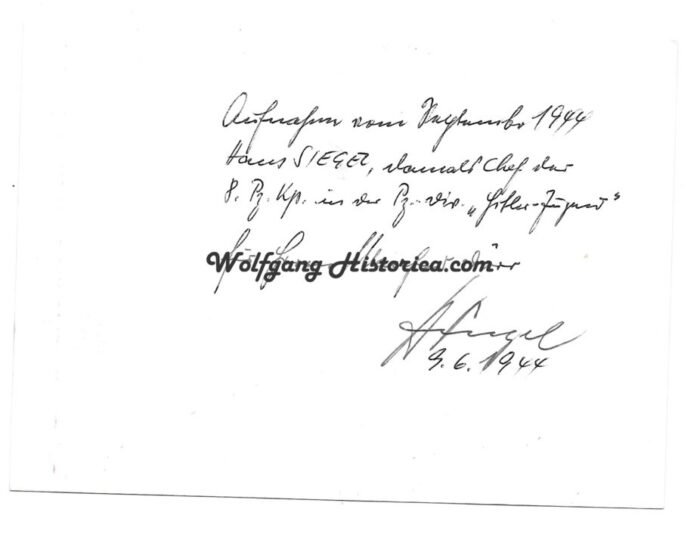 Aufnahme vom September 1944
Hans SIEGEL, damals Chef der
8. Pz. Kp. in der Pz.-Div. „Hitler-Jugend"
Wolfgang Historica.com
HSiegel
9.6.1944